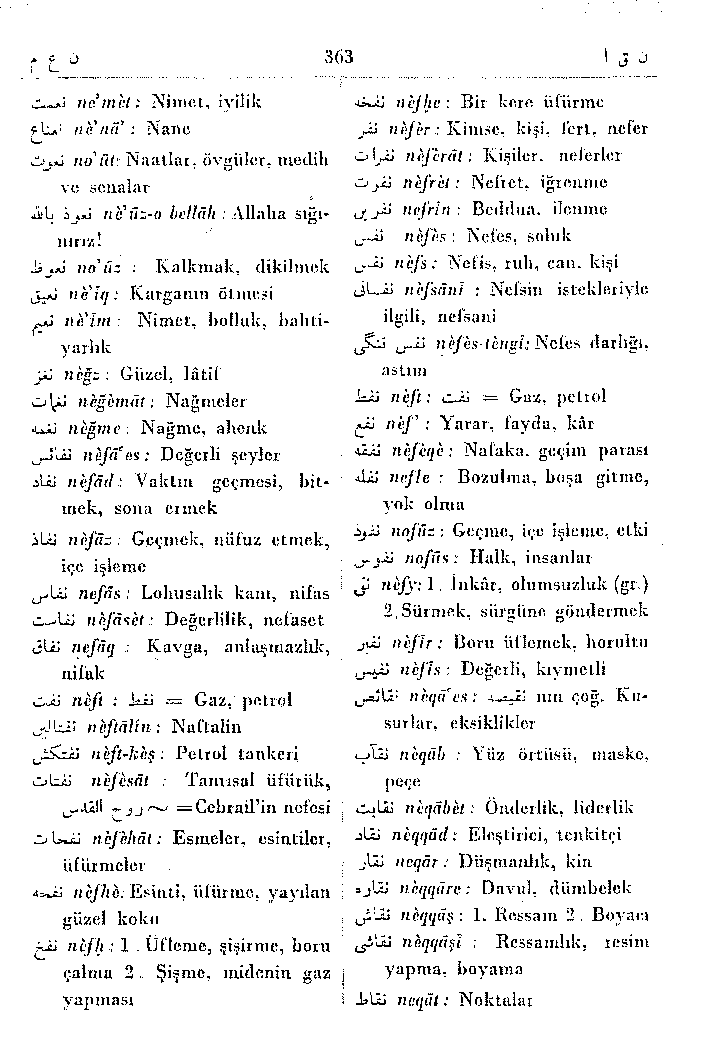 ن ع م 363 ن ق ا
نعمت ne'mèt : Nimet, iyilik
نعناع nè'nā' : Nane
نعوت no'ūt: Naatlar, övgüler, medih
ve senalar
نعوذ بالله nè'ūz-o bellāh : Allaha sığı-
nırız!
نعوظ no'ūz : Kalkmak, dikilmek
نعيق nè'īq : Karganın ötmesi
نعيم nè'īm : Nimet, bolluk, bahti-
yarlık
نغز nèğz : Güzel, lâtif
نغمات nèğèmāt : Nağmeler
نغمه nèğme : Nağme, ahenk
نفائس nèfā'es : Değerli şeyler
نفاد nèfād : Vaktın geçmesi, bit-
mek, sona ermek
نفاذ nèfāz : Geçmek, nüfuz etmek,
içe işleme
نفاس nefās : Lohusalık kanı, nifas
نفاست nèfāsèt : Değerlilik, nefaset
نفاق nefāq : Kavga, anlaşmazlık,
nifak
نفت nèft : نفط = Gaz, petrol
نفتالين nèftālin : Naftalin
نفتكش nèft-kèş : Petrol tankeri
نفثات nèfèsāt : Tanrısal üfürük,
~ روح القدس =Cebrail'in nefesi
نفحات nèfèhāt : Esmeler, esintiler,
üfürmeler
نفحه nèfhè: Esinti, üfürme, yayılan
güzel koku
نفخ nèfḫ : 1 . Üfleme, şişirme, boru
çalma 2 . Şişme, midenin gaz
yapması
نفخه nèfḫe : Bir kere üfürme
نفر nèfèr : Kimse, kişi, fert, nefer
نفرات nèferāt : Kişiler, neferler
نفرت nèfrèt : Nefret, iğrenme
نفرين nefrin : Beddua, ilenme
نفس nèfès : Nefes, soluk
نفس nèfs : Nefis, ruh, can, kişi
نفسانى nèfsānī : Nefsin istekleriyle
ilgili, nefsani
نفس تنگى nèfès-tèngī: Nefes darlığı,
astım
نفط nèft : نفت = Gaz, petrol
نفع nèf' : Yarar, fayda, kâr
نفقه nèfèqè : Nafaka, geçim parası
نفله nefle : Bozulma, boşa gitme,
yok olma
نفوذ nofūz : Geçme, içe işleme, etki
نفوس nofūs : Halk, insanlar
نفى nèfy: 1 . İnkâr, olumsuzluk (gr.)
2.Sürmek, sürgüne göndermek
نفير nèfīr : Boru üflemek, horultu
نفيس nèfīs : Değerli, kıymetli
نقائص nèqā'es : نقيصه nın çoğ. Ku-
surlar, eksiklikler
نقاب neqāb : Yüz örtüsü, maske,
peçe
نقابت nèqābèt : Önderlik, liderlik
نقاد nèqqād : Eleştirici, tenkitçi
نقار neqār : Düşmanlık, kin
نقاره nèqqāre : Davul, dümbelek
نقاش nèqqāş : 1. Ressam 2 . Boyacı
نقاشى nèqqāşī : Ressamlık, resim
yapma, boyama
نقاط neqāt : Noktalar